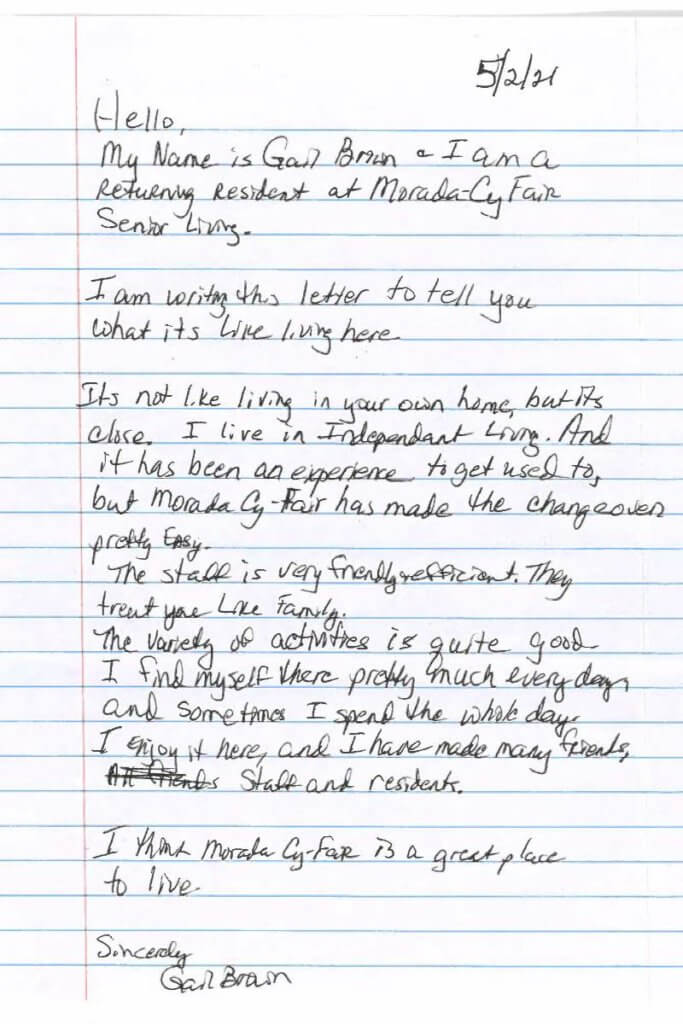 5/2/21
Hello,
My Name is Gail Brown & I am a
Returning Resident at Morada-Cy Fair
Senior Living.
I am writing this letter to tell you
what its like living here
Its not like living in your own home, but its
close. I live in Independant Living. And
it has been an experience to get used to,
but Morada Cy-Fair has made the changeover
pretty Easy.
The staff is very friendly & efficient. They
treat you Like Family.
The variety of activities is quite good
I find myself there pretty much every day,
and sometimes I spend the whole day.
I Enjoy it here, and I have made many friends,
All friends Staff and residents.
I think Morada Cy-Fair is a great place
to live.
Sincerely
Gail Brown